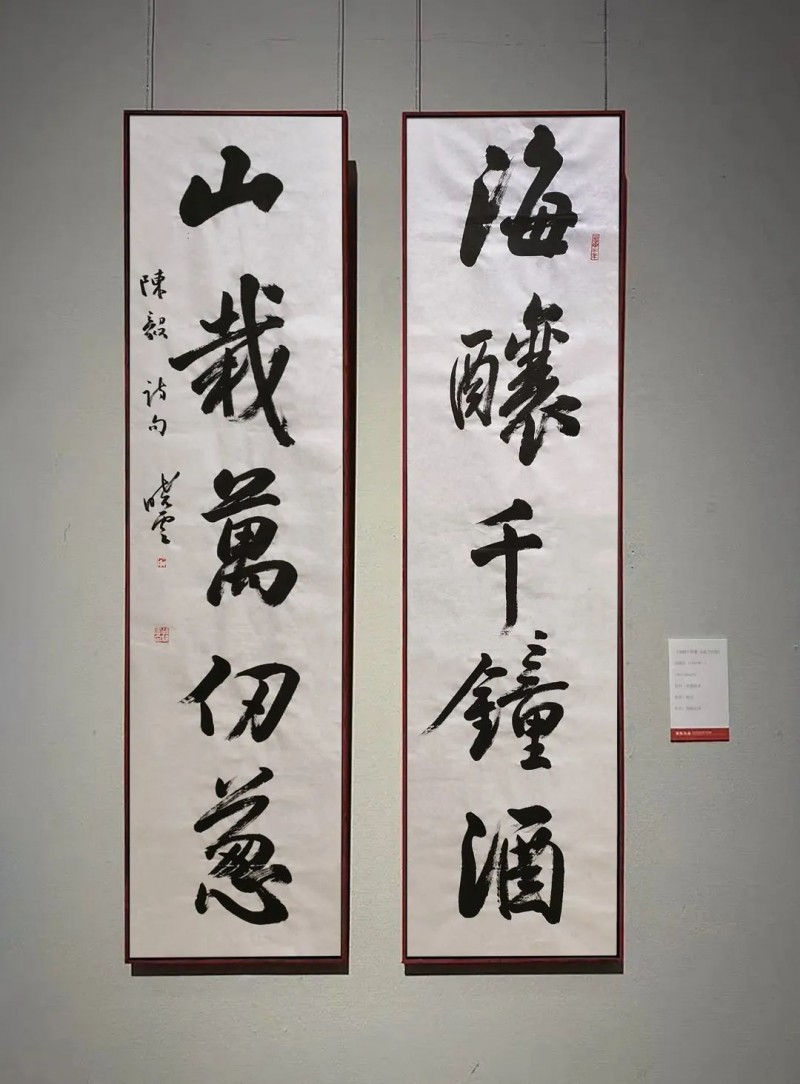 海釀千鐘酒
山栽萬仞蔥
陳毅 詩句 曉雲